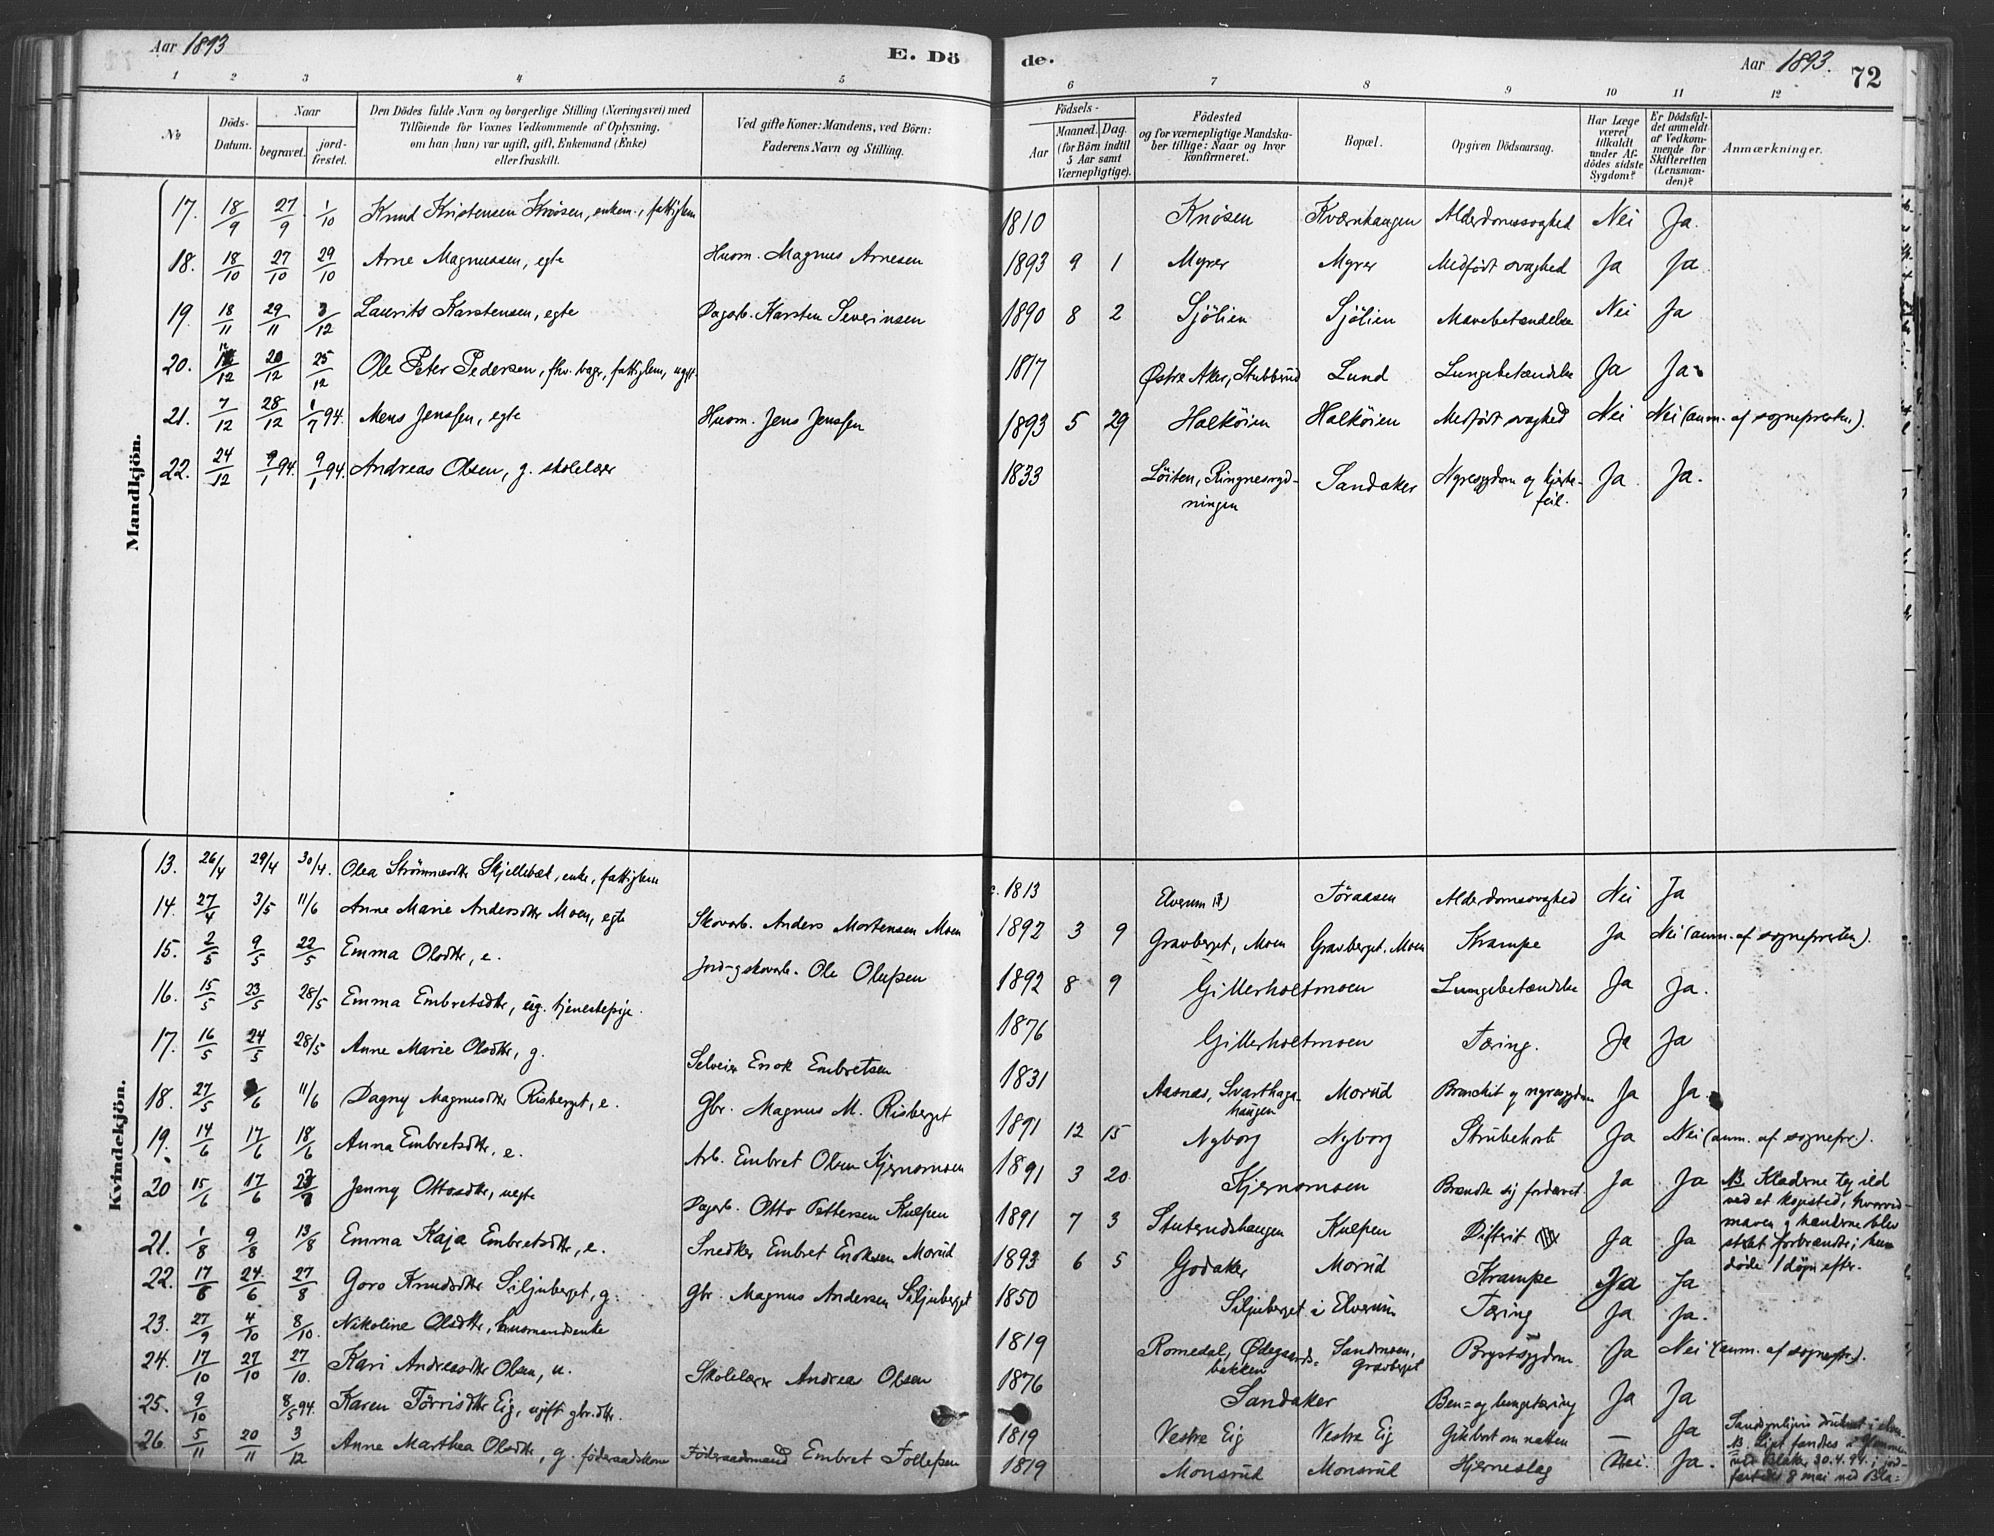 Aar 1893
E. Dö
de.
Aar 1893.
72
1 2 3 4 5 6 7 8 9 10 11 12
No
Döds-Datum.
Naar
begravet.
jord-fæstet.
Den Dödes fulde Navn og borgerlige Stilling (Næringsvei) med
Tilföiende for Voxnes Vedkommende af Oplysning,
om han (hun) var ugift, gift, Enkemand (Enke)
eller fraskilt.
Ved gifte Koner: Mandens, ved Börn:
Faderens Navn og Stilling.
Födsels-
Aar
Maaned. Dag.
(for Börn indtil
5 Aar samt
Værnepligtige).
Födested
og for værnepligtige Mandska-
ber tillige: Naar og hvor
konfirmeret.
Bopæl.
Opgiven Dödsaarsag.
Har Læge
været
tilkaldt
under Af-
dödes sidste
Sygdom?
Er Dödsfal-
det anmeldt
af Vedkom-
mende for
Skifteretten
(Lensman-
den)?
Anmærkninger.
Mandkjön.
17. 18/9 27/9 1/10 Knud Kristensen Knøsen, enkem., fattiglem 1810 Knøsen Kværnhaugen Alderdomssvaghed Nei Ja.
18. 18/10 27/10 29/10 Arne Magnussen, egte Husm. Magnus Arnesen 1893 9 1 Myrer Myrer Medfödt svaghed Ja Ja
19. 18/11 29/11 3/12 Laurits Karstensen, egte Dagarb. Karsten Severinsen 1890 8 2 Sjölien Sjölien Mavebetændelse Nei Ja
20. /12 20/12 25/12 Ole Peter Pedersen, fhv. bager, fattiglem, ugift. 1817 Østre Aker, Stubberud Lund Lungebetændelse Ja Ja.
21. 7/12 28/12 1/7 94. Mens Jenssen, egte Husm. Jens Jenssen 1893 5 29 Halköien Halköien Medfödt svaghed Nei Nei (anm. af sognepresten).
22. 24/12 9/1 94. 9/1 94. Andreas Olsen, g. skolelærer 1833 Löiten, Ringnesryd-
ningen Sandaker Nyresygdom og hjerte-
feil. Ja Ja.
Kvindekjön.
13. 26/4 29/4 30/4. Olea Strömmesdtr Skjellebæk, enke, fattiglem c. 1813 Elverum (?) Töraasen Alderdomssvaghed Nei Ja
14. 27/4 3/5 11/6 Anne Marie Andersdtr Moen, egte Skovarb. Anders Mortensen Moen 1892 3 9 Gravberget, Moen Gravberget. Moen Krampe Ja Nei (anm. af sognepresten).
15. 2/5 9/5 22/5 Emma Olsdtr, e. Jord- og skovarb. Ole Olufsen 1892 8 9 Gillerholtmoen Lungebetændelse Ja Ja.
16. 15/5 23/5 28/5 Emma Embretsdtr, ug. tjenestepige. 1876 Gillerholtmoen Tæring. Ja Ja
17. 16/5 24/5 28/5 Anne Marie Olsdtr, g. Selveier Enok Embretsen 1831 Aasnas, Svarthaga-
haugen Morud Bronchit og nyresygdom Ja Ja.
18. 27/5 /6 11/6 Dagny Magnusdtr Risberget, e. Gbr. Magnus M. Risberget 1891 12 15 Nyborg Nyborg Strubehoste Ja Nei (anm. af sognepr.).
19. 14/6 17/6 18/6 Anna Embretsdtr, e. Arb. Embret Olsen Kjernmoen 1891 3 20 Kjernmoen Brændte sig fordærvet. Ja Ja NB. Klæderne tog ild
ved et kogested, hvorved
maven og hænderne blev
stærkt forbrændte; hun
døde 1 døgn efter.
20 15/6 17/6 Jenny Ottosdtr, uegte Dagarb. Otto Pettersen Kulpen 1891 7 3 Stuterudshaugen Kulpen Difterit Ja Ja
21. 1/8 9/8 13/8 Emma Kaja Embretsdtr, e. Snedker Embret Enoksen Morud 1893 6 5 Godaker Morud Krampe Ja Ja
22. 17/6 24/6 27/8 Goro Knudsdtr Siljuberget, g. Gbr. Magnus Andersen Siljuberget 1850 Siljuberget i Elverum Tæring Ja Ja.
23. 27/9 4/10 8/10. Nikoline Olsdtr, husmandsenke 1819 Romedal, Ødegaards-
bakken Sandmoen,
Gravberget Brystsygdom Ja Nei (anm. af sognepr.).
24. 17/10 27/10 27/10. Kari Andreasdtr Olsen, u. Skolelærer Andreas Olsen 1876 Sandaker Ben- og lungetæring Ja Ja
25. 9/10 8/5 94. Karen Törrisdtr Eig, ugift gbr.dtr. 1819 Vestre Eig Vestre Eig Gik bort om natten — Ja Sandsynligvis druknet i
NB. Liget fandtes i Glommen
ved Blaker 30.4.94. jord-
fæstet 8 mai ved Bla=
26. 5/11 20/11 3/12 Anne Marthea Olsdtr, g. föderaadskone Föderaadsmand Embret Tollefsen 1819 Monsrud Monsrud Hjerneslag Nei. Ja.